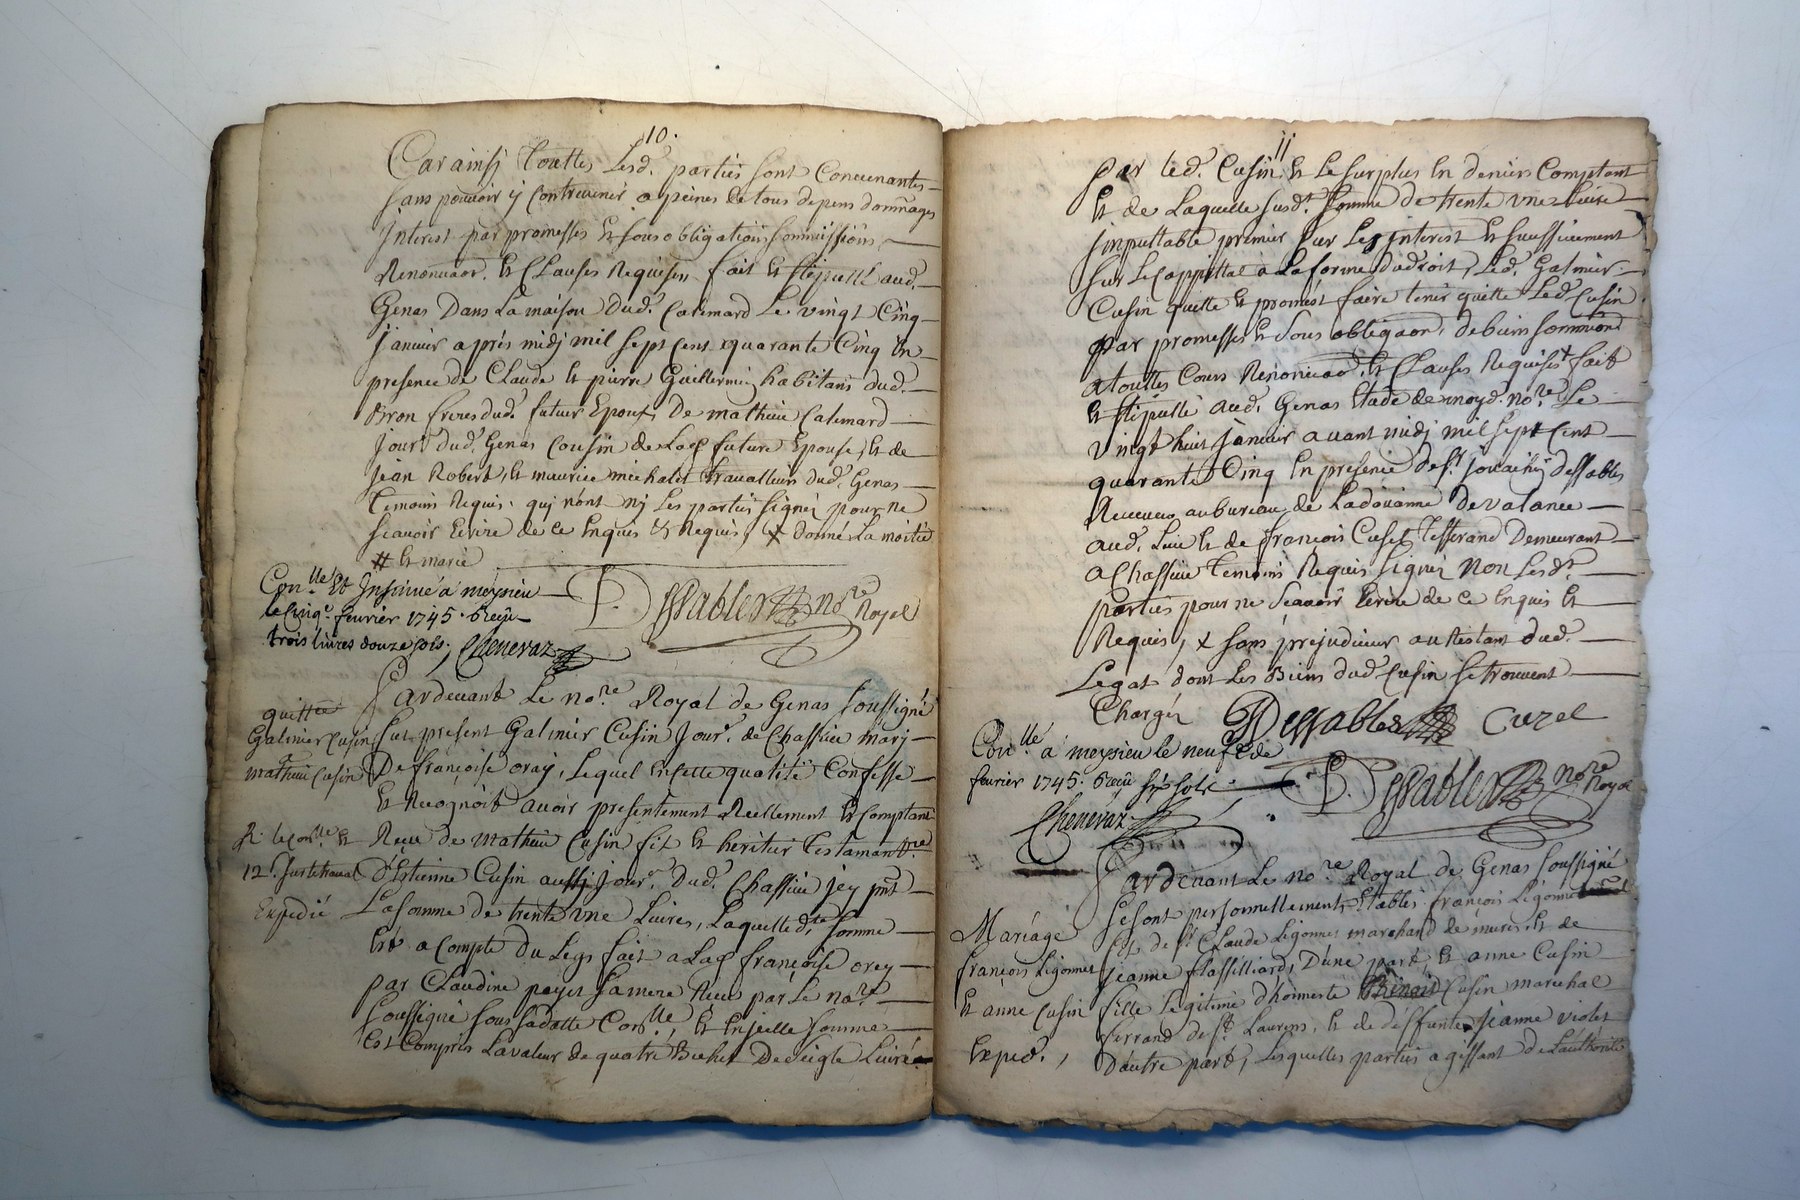 10.
Car ainsy Touttes Lesd. parties sont Conuenantes
sans pouuoir y Contreuenir a peines de tous depens dommages
Interest par promesses Et sous obligations soumissions
Renonnaon. Et Clauses Requises fait Et stipullé aud.
Genas Dans La maison Dud. Catemard Le vingt Cinq
Januier après midj mil sept Cent quarante Cinq En
presence de Claude Et pierre Guillermin habitans dud.
Bron freres dud. futur Epoux, De mathieu Catemard
Jour. dud. Genas Cousin de Lad. future Epouse, Et de
Jean Robert, Et maurice michalet Trauailleurs dud. Genas
Temoins Requis qui n'ont nj Les parties signéz pour ne
Scauoir Ecrire de ce Enquis Et Requis, x donné La moitié
# Et marié
Con.lle Et Insinué a meysieu
le Cinq.e feurier 1745. Reçu
trois liures douze sols. Cheneraz
P. Dessables no.re Royal
quittce
Galmier Cusin
a mathieu Cusin
R. le con.lle Et
12.s sur le traual
Expedié
Pardeuant Le no.re Royal de Genas soussigné
fut present Galmier Cusin Jour. de Chassieu marj
De françoise oray, Lequel En cette qualité Confesse
Et Recognoit auoir presentement Reellement Et Comptant
Reçu de mathieu Cusin fils Et heritier Testamantre
D'Estienne Cusin aussj Jour. Dud. Chassieu jcy pnt
La somme de trente vne Liures, Laquelle d.te somme
Est a Compte du Legs fait a Lad. françoise orey
par Claudine payet sa mere Reçu par Le no.re
soussigné sous sa datte Con.lle, Et En jcelle somme
Est Compris La valeur de quatre Bichet De seigle Liuré
11
par Led. Cusin Et Le surplus En deniers Comptant
Et de Laquelle susd.te somme de trente vne Liure
Imputtable premier sur Les Interest Et successiuement
sur Le Cappittal à La forme du droit, Led. Galmier
Cusin quitte Et promest faire tenir quitte Led. Cusin
par promesses Et sous obligaon. de biens soummions
a touttes Cours Renonnaon. Et Clauses Requises x fait
Et stipullé aud. Genas Etude de moyd. no.re Le
vingt huit januier auant midj mil sept Cent
quarante Cinq En presence de s.r joachin dessables
Receueur au bureau de La doüanne De valance
aud. Lieu Et de françois Cusel Tisserand Demeurant
a Chassieu Temoins Requis signéz Non Lesd.
parties pour ne Scauoir Ecrire de ce Enquis Et
Requis, x sans prejudicier au Restant dud.
Legat dont Les Biens dud. Cusin se trouuent
Chargéz Dessables Cuzel
Con.lle a meysieu le neuf de
feurier 1745. Reçu six sols
Cheneraz
P. Dessables no.re Royal
Mariage
françois Ligonnet
Et anne Cusin
Exped.
Pardeuant Le no.re Royal de Genas soussigné
se sont personnellement Etablis françois Ligonnet
fils de s.r Claude Ligonnet marchand de mures Et de
jeanne flassilliard, D'une part, Et anne Cusin
fille Legitime d'honneste Benoit Cusin marechal
ferrand de s.t Laurens, Et de deffunte jeanne violet
D'autre part, Lesquelles parties agissant de L'authorité